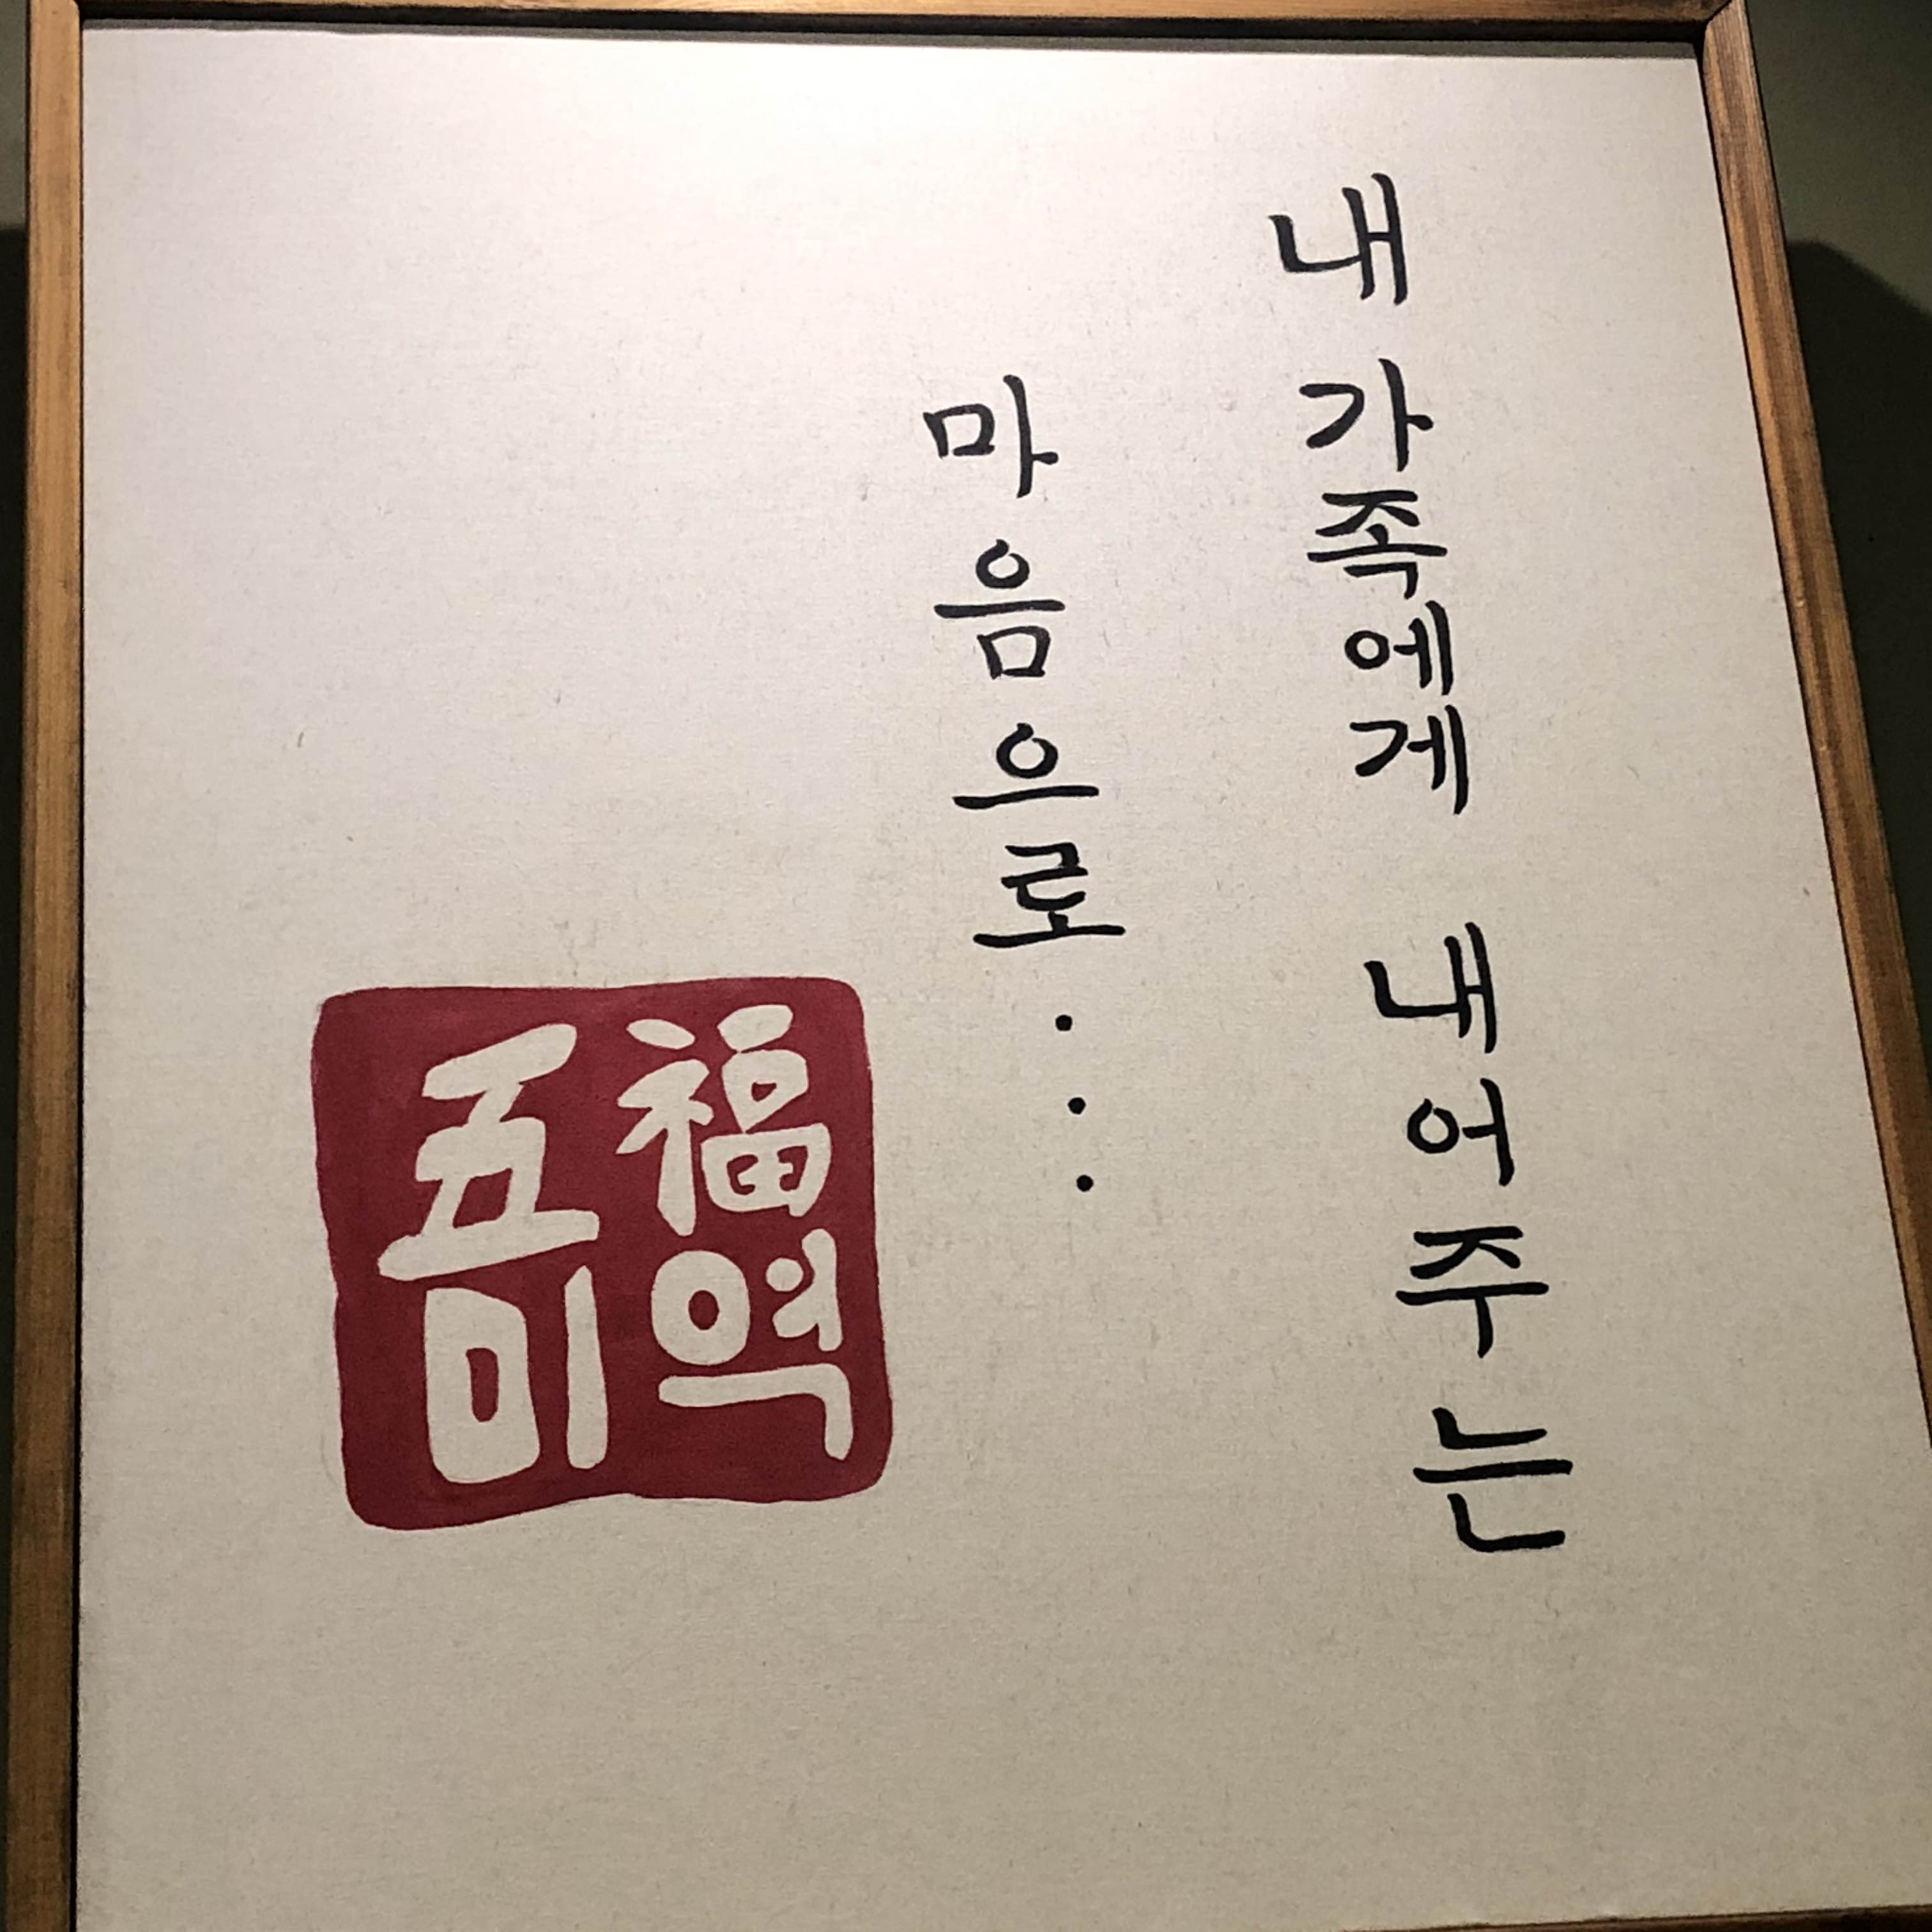 내 가족에게 내어주는
마음으로...
五福
미역